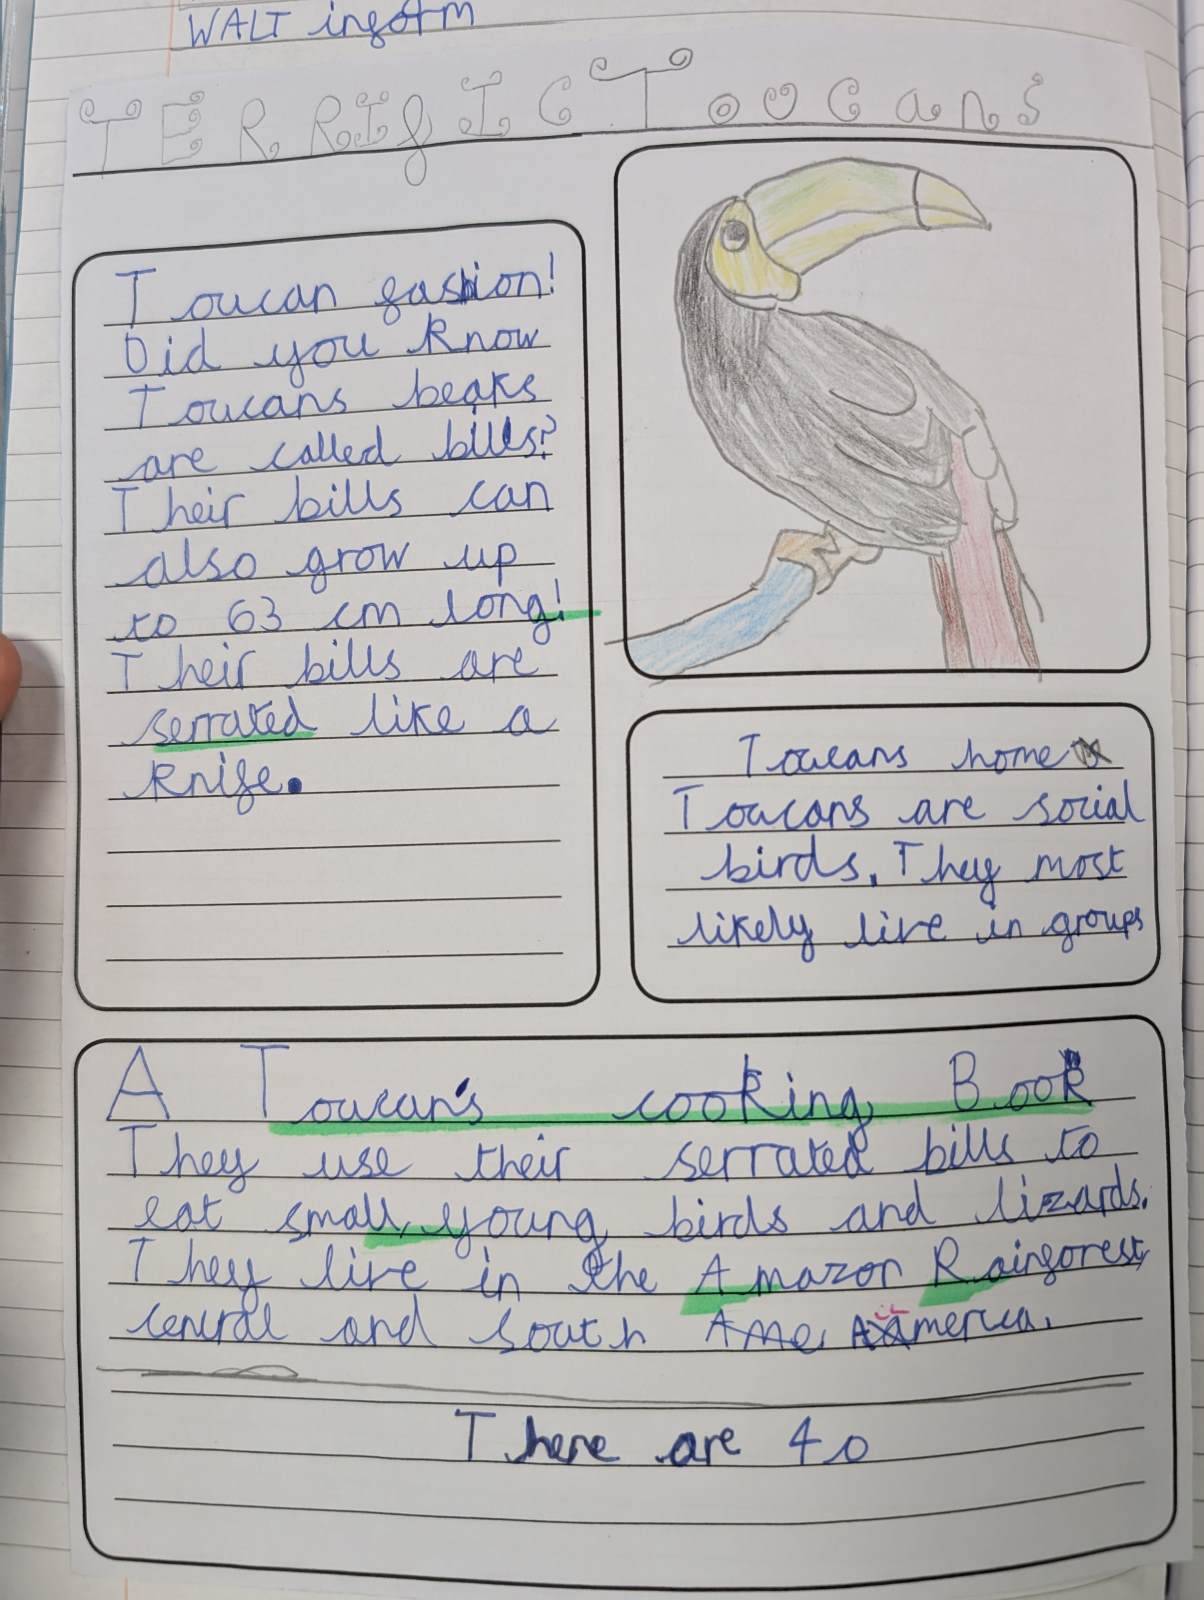 WALT inform
TERRIfIC Toucans
Toucan fashion!
Did you know
Toucans beaks
are called bills?
Their bills can
also grow up
to 63 cm long!
Their bills are
serrated like a
knife.
Toucans home
Toucans are social
birds. They most
likely live in groups
A Toucan's cooking Book
They use their serrated bills to
eat small, young birds and lizards.
They live in the Amazon Rainforest,
central and south Ame America.
There are 40